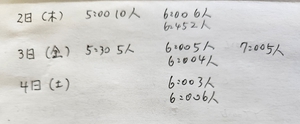 2日(木) 5:00 10人 6:00 6人
6:45 2人
3日(金) 5:30 5人 6:00 5人 7:00 5人
6:00 4人
4日(土) 6:00 3人
6:00 6人